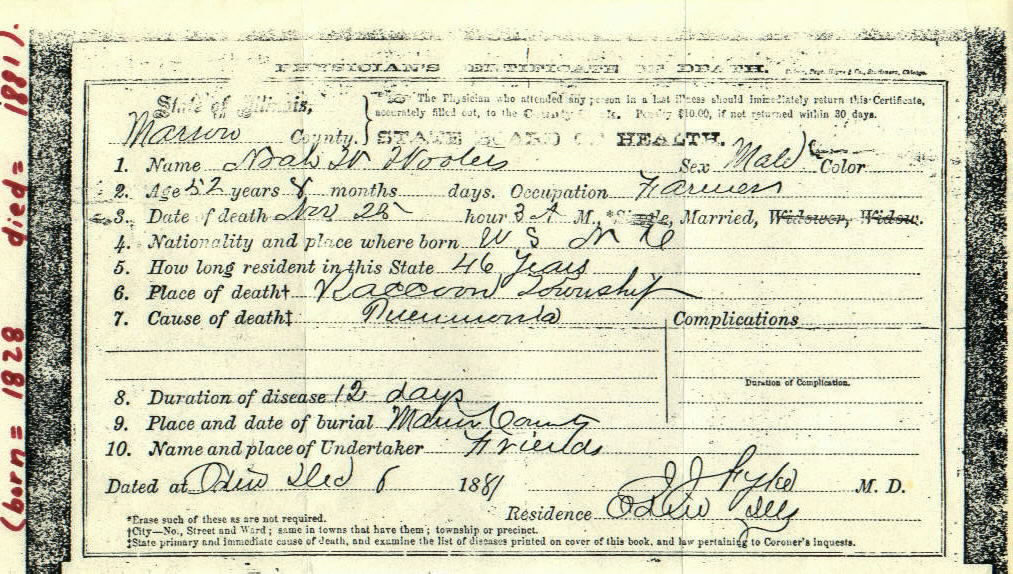 (born = 1828 died = 1881).
PHYSICIAN'S CERTIFICATE OF DEATH.
State of Illinois,
Marion County.
The Physician who attended any person in a last illness should immediately return this Certificate,
accurately filled out, to the County Clerk. Penalty $10.00, if not returned within 30 days.
STATE BOARD OF HEALTH.
1. Name Noah W Wooters Sex Male Color
2. Age 52 years 8 months days. Occupation Farmer
3. Date of death Nov 25 hour 3 A M., *Single, Married, Widower, Widow.
4. Nationality and place where born U S
5. How long resident in this State 46 years
6. Place of death† Raccoon Township
7. Cause of death‡ Pneumonia Complications
Duration of Complication.
8. Duration of disease 12 days
9. Place and date of burial Marion County
10. Name and place of Undertaker Friends
Dated at Odin Dec 6 1881 J J Fyke M. D.
Residence Odin Ills
*Erase such of these as are not required.
†City—No., Street and Ward; same in towns that have them; township or precinct.
‡State primary and immediate cause of death, and examine the list of diseases printed on cover of this book, and law pertaining to Coroner's inquests.